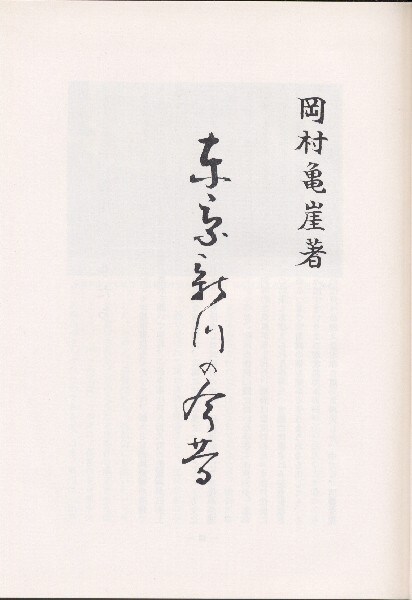 岡村亀崖著
東京新川の今昔